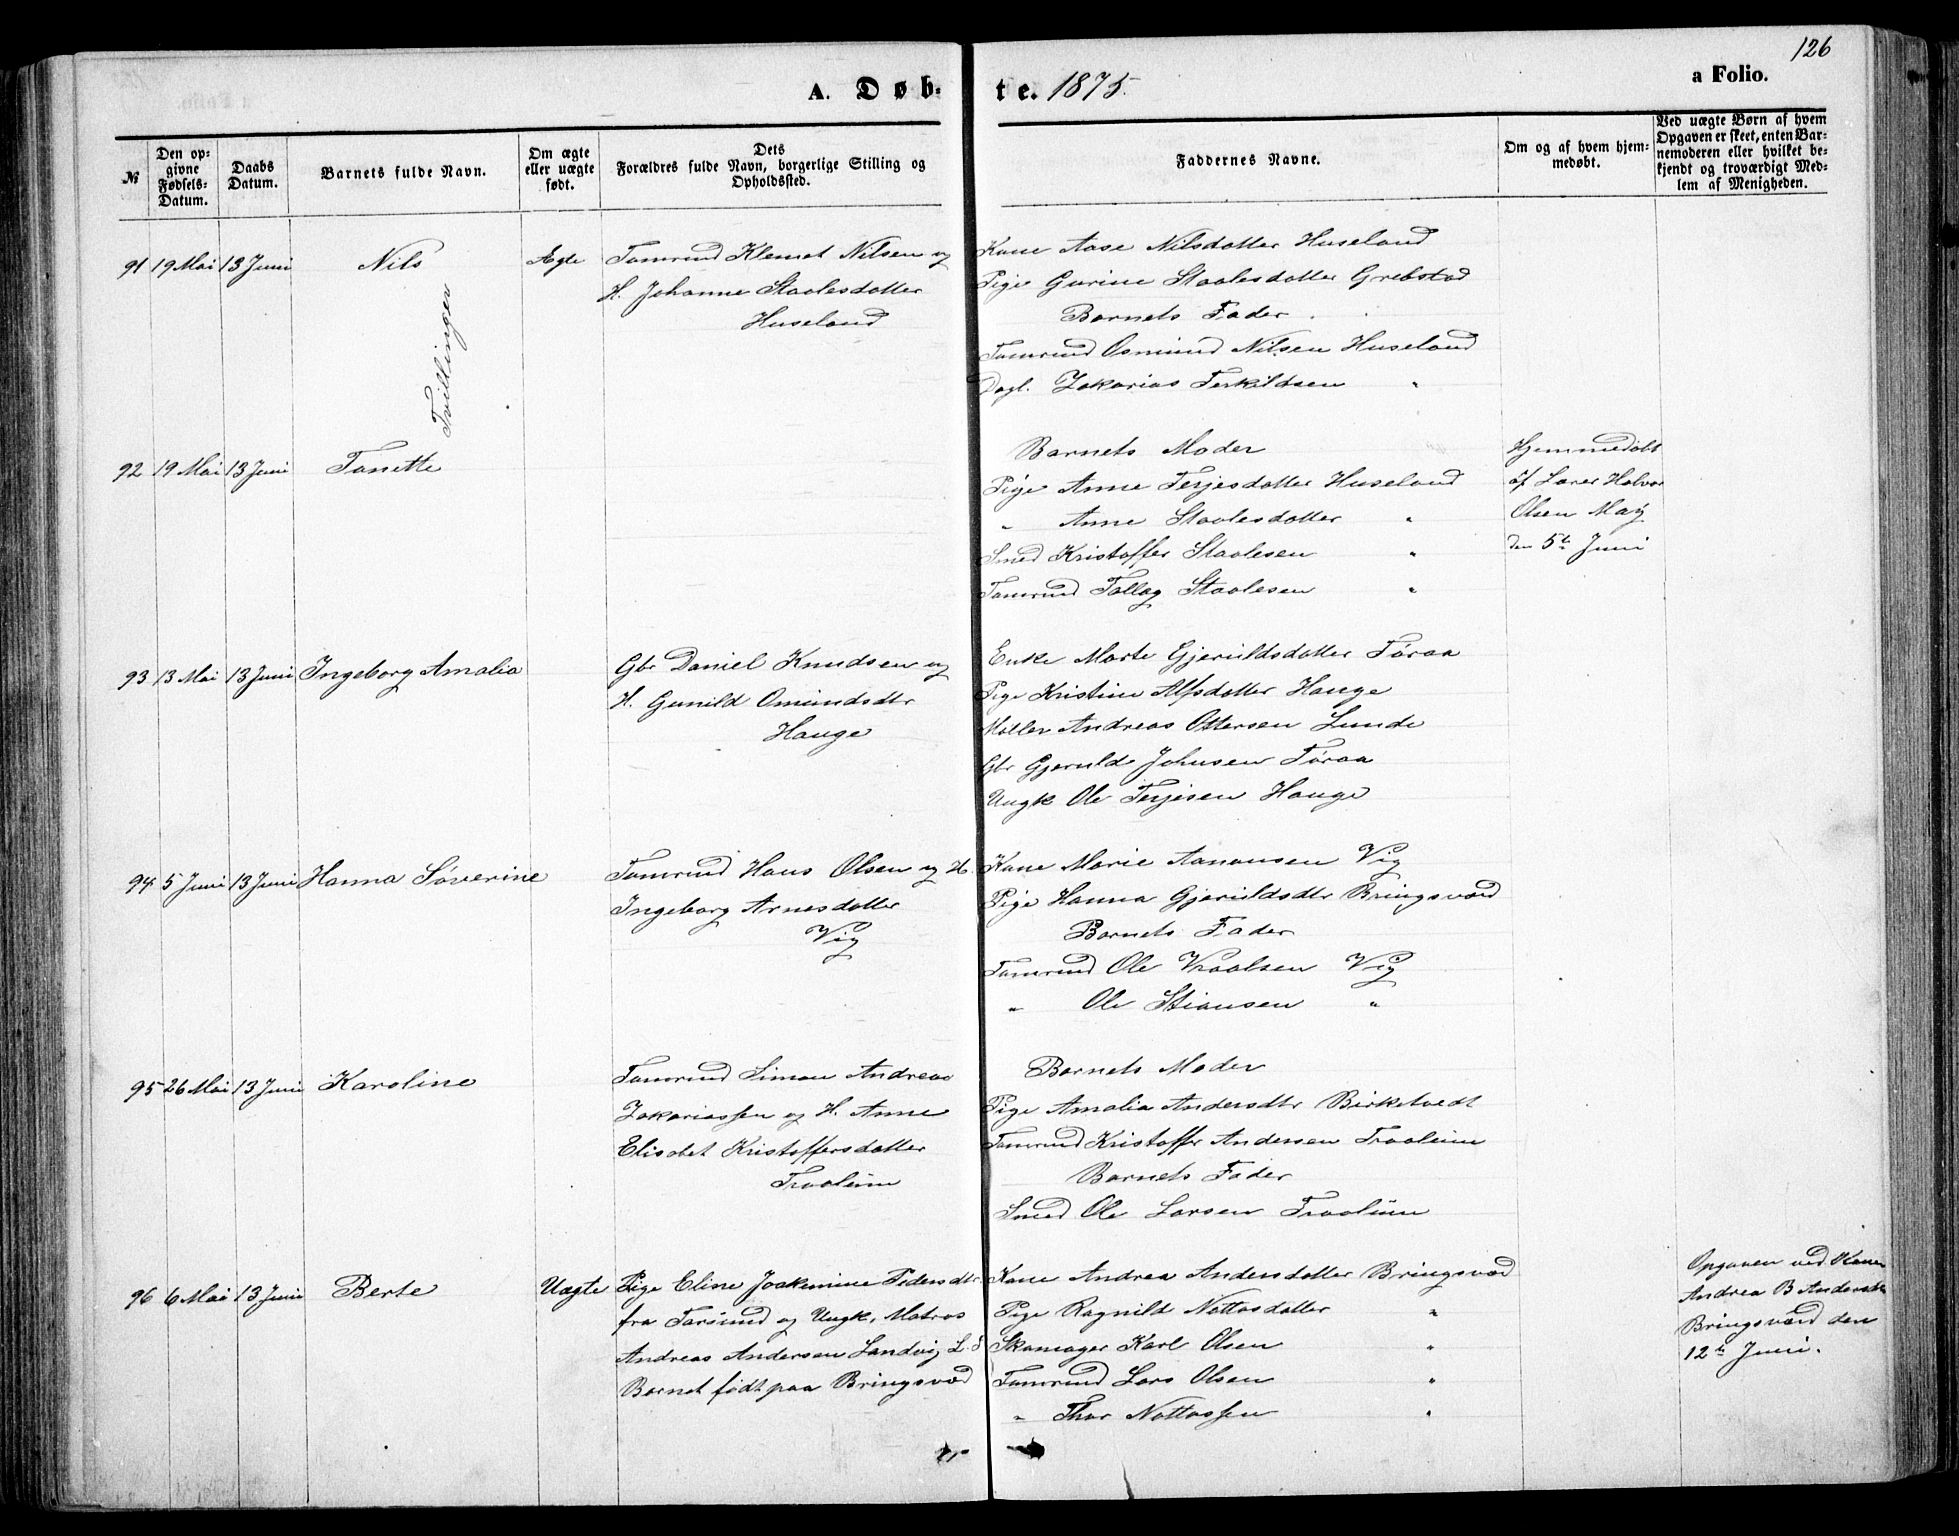 126
A. Døb-
te. 1875.
a Folio.
№
Den op-
givne
Fødsels-
Datum.
Daabs
Datum.
Barnets fulde Navn.
Om ægte
eller uægte
født.
Dets
Forældres fulde Navn, borgerlige Stilling og
Opholdssted.
Faddernes Navne.
Om og af hvem hjem-
medøbt.
Ved uægte Børn af hvem
Opgaven er skeet, enten Bar-
nemoderen eller hvilket be-
kjendt og troværdigt Med-
lem af Menigheden.
91 19 Mai 13 Juni Nils Ægte
Tvillinger
Tømrmd Klemet Nilsen og
H. Johanne Staalesdatter
Huseland
Kane Aase Nilsdatter Huseland
Pige Gurine Staalesdatter Grebstad
Barnets Fader
Tømrmd Osmund Nilsen Huseland
Dagl. Zakarias Terkildsen "
92 19 Mai 13 Juni Tanette
Barnets Moder
Pige Anne Terjesdatter Huseland
" Anne Staalesdatter "
Smed Kristoffer Staalesen "
Tømrmd Tallag Staalesen "
Hjemmedøbt
af Lærer Halvor
Olsen Møy
den 5te Juni
93 13 Mai 13 Juni Ingeborg Amalia
Gbr Daniel Knudsen og
H. Gunild Omundsdtr
Hauge
Enke Marte Gjeruldsdatter Føraa
Pige Kristine Alfsdatter Hauge
Møller Andreas Ottersen Lunde
Gbr Gjeruld Johnsen Føraa
Ungk Ole Terjesen Hauge
94 5 Juni 13 Juni Hanna Søverine
Tømrmd Hans Olsen og H.
Ingeborg Arnesdatter
Vig
Kane Marie Aanonsen Vig
Pige Hanna Gjeruldsdtr Bringsværd
Barnets Fader
Tømrmd Ole Vraalsen Vig
" Ole Stiansen "
95 26 Mai 13 Juni Karoline
Tømrmd Simon Andreas
Zakariassen og H. Anne
Elisabet Kristoffersdatter
Traaleim
Barnets Moder
Pige Amalia Andersdtr Birketvedt
Tømrmd Kristoffer Andersen Traaleim
Barnets Fader
Smed Ole Larsen Traaleim
96 6 Mai 13 Juni Berte Uægte
Pige Eline Joakimine Pedersdtr
fra Farsund og Ungk. Matros
Andreas Andersen Landvig L. S
Barnet født paa Bringsværd
Kane Andrea Andersdatter Bringsværd
Pige Ragnild Nottosdatter "
Skomager Karl Olsen "
Tømrmd Lars Olsen "
" Thor Nottossen "
Opgaven ved Kanen
Andrea B Andersdtr
Bringsværd den
12te Juni.